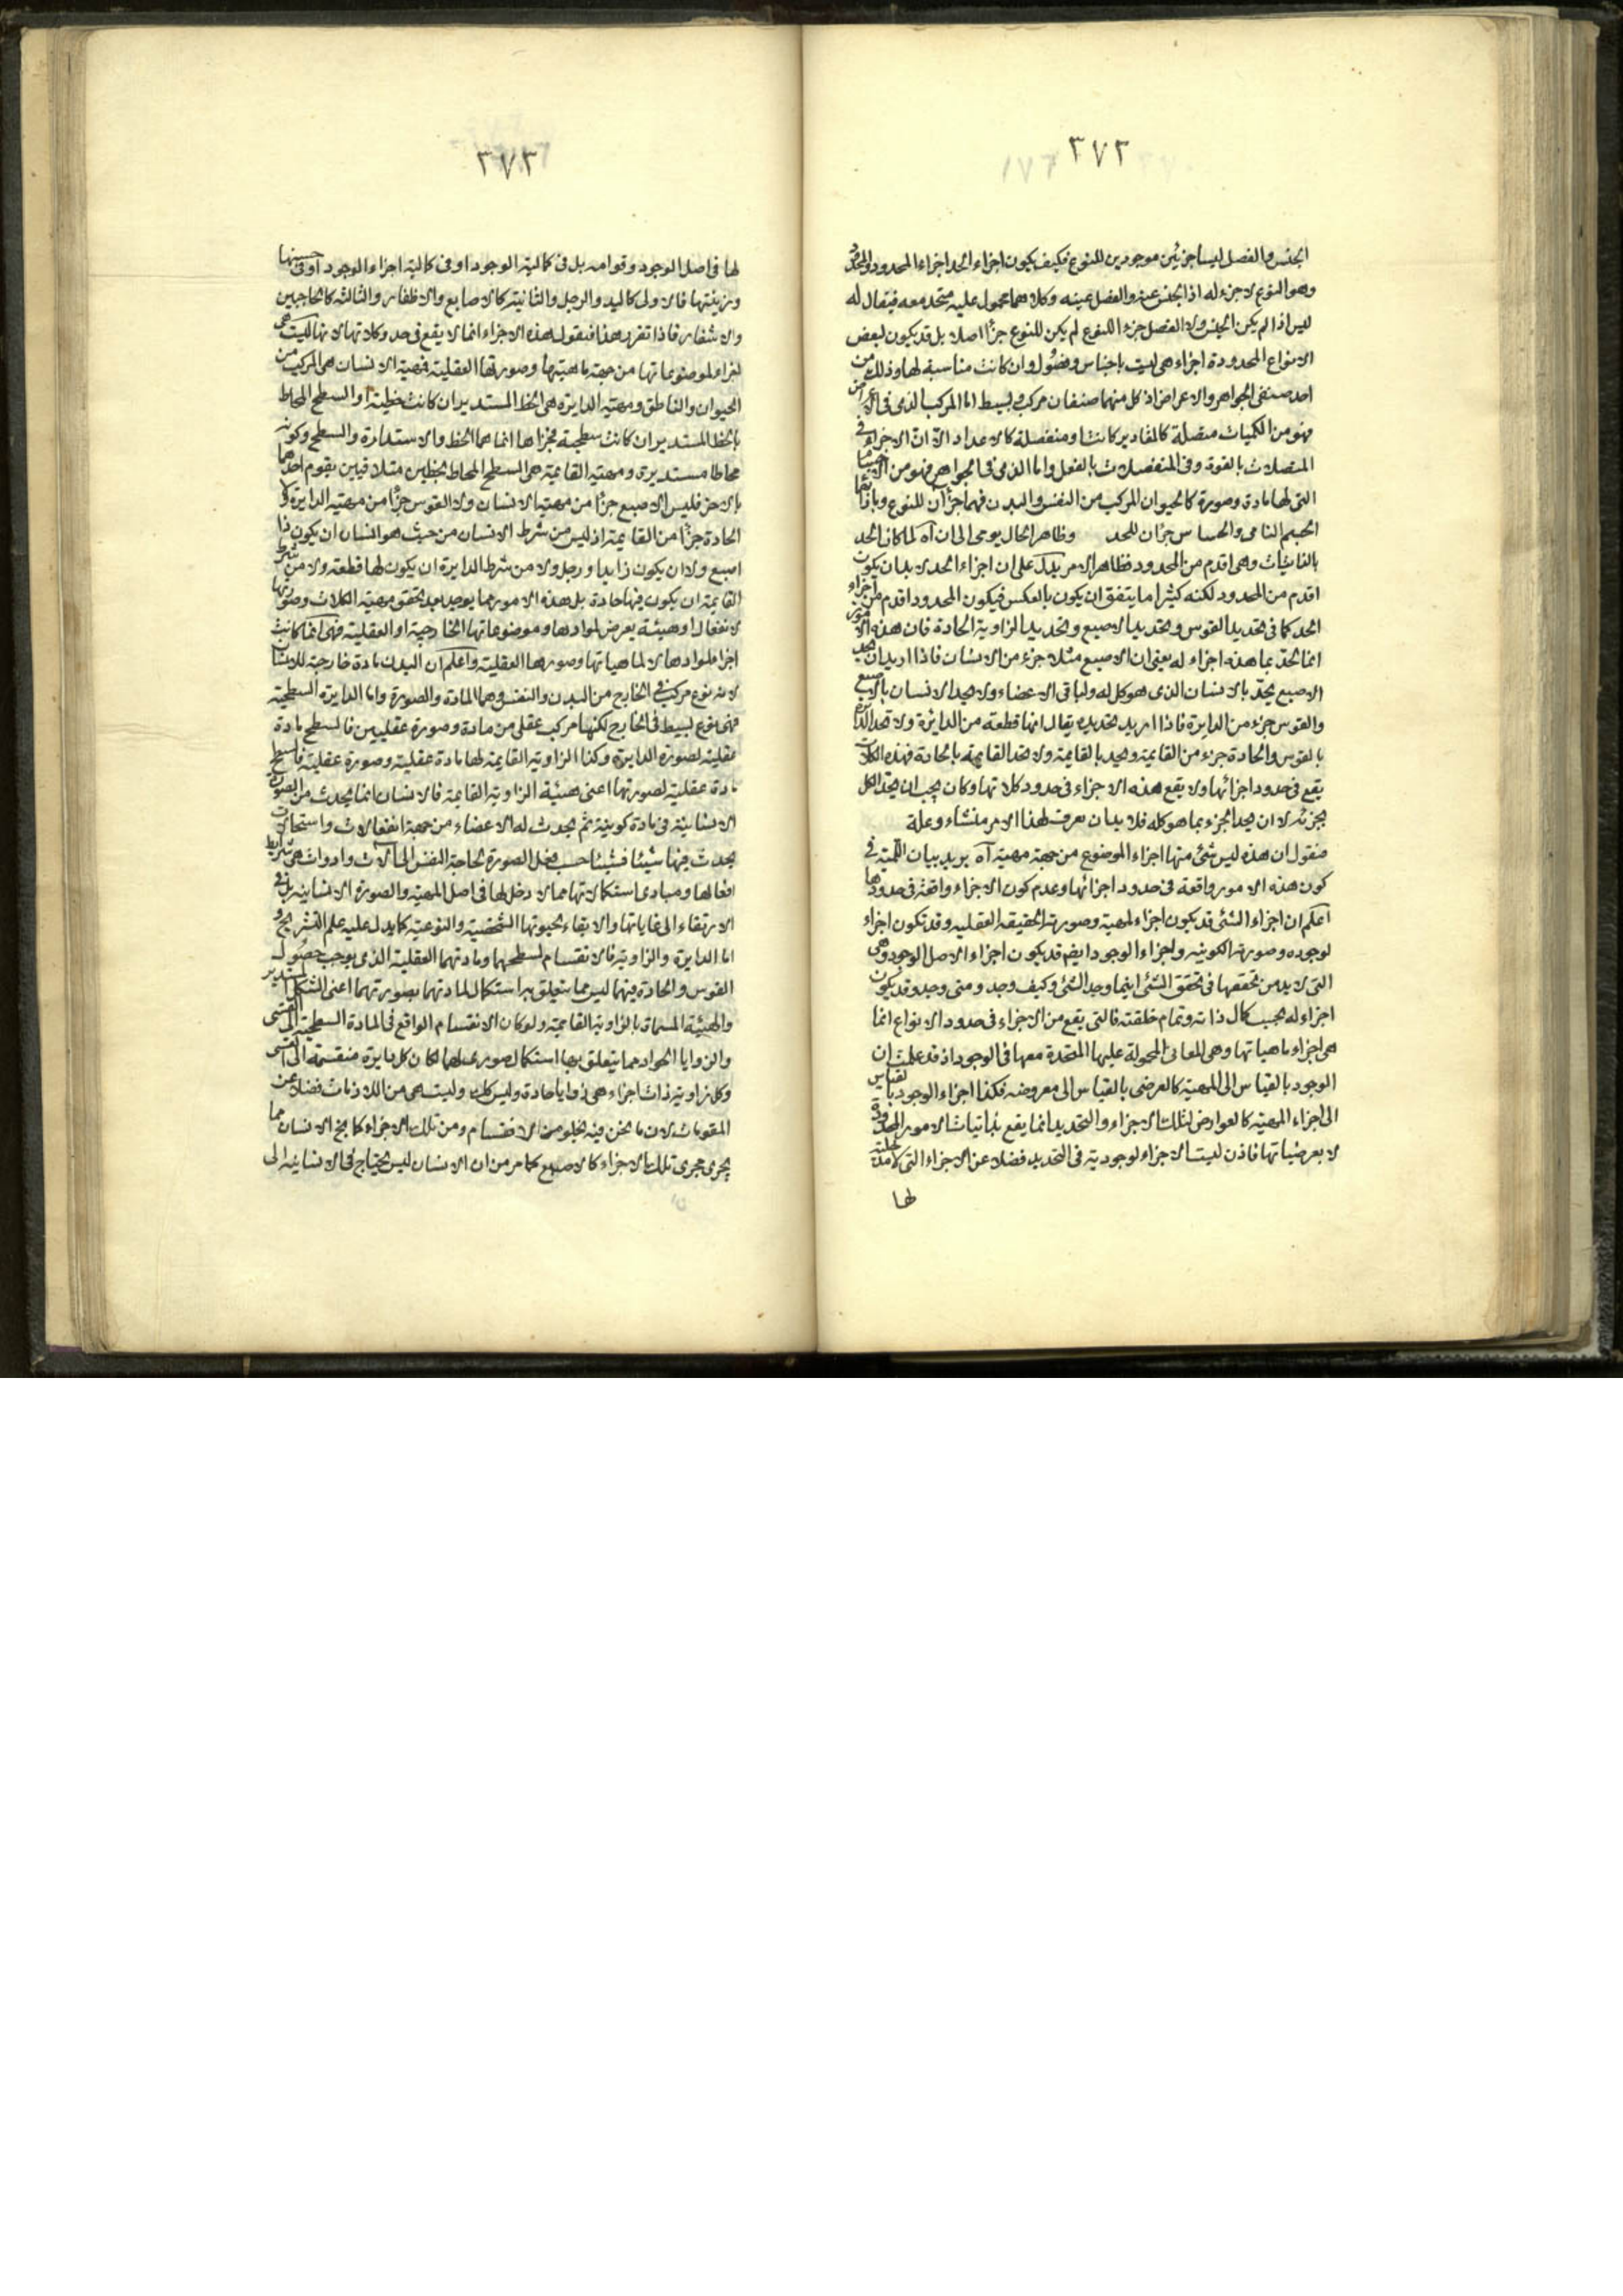 ٣٧٢
الجنس والفصل ليسا جزئين موجودين للنوع فكيف يكون اجزاء الحد اجزاء المحدود والمحدود
وهو النوع لا جزء له اذ الجنس عينه والفصل عينه وكلاهما محمول عليه متحد معه فيقال له
ليس اذا لم يكن الجنس ولا الفصل جزء النوع لم يكن للنوع جزءا اصلا بل قد يكون لبعض
الانواع المحدودة اجزاء هى ليست باجناس وفصول وان كانت مناسبة لها وذلك من
احد صنفى الجواهر والاعراض اذ كل منهما صنفان مركب وبسيط اما المركب الذى فى الاعراض
فهو من الكميات متصلة كالمقادير كانت او منفصلة كالاعداد الا ان الاجزاء فى
المتصلات بالقوة وفى المنفصلات بالفعل واما الذى فى الجواهر فهو من الاجسام
التى لها مادة وصورة كالحيوان المركب من النفس والبدن فهما جزآن للنوع وبازائهما
الجسم النامى والحساس جزآن للحد وظاهر الحال يومى الى ان آه لما كان الحد
بالذاتيات وهى اقدم من المحدود فظاهر الامر يدل على ان اجزاء الحد لا بد ان يكون
اقدم من المحدود لكنه كثيرا ما يتفق ان يكون بالعكس فيكون المحدود اقدم من اجزاء
الحد كما فى تحديد القوس وتحديد الاصبع وتحديد الزاوية الحادة فان هذه الامور
انما تحد بما هذه اجزاء له يعنى ان الاصبع مثلا جزء من الانسان فاذا اريد ان يحد
الاصبع يحد بالانسان الذى هو كل له ولباقى الاعضاء ولا يحد الانسان بالاصبع
والقوس جزء من الدايرة فاذا اريد تحديده يقال انها قطعة من الدائرة ولا تحد الدايرة
بالقوس والحادة جزء من القايمة وتحد بالقايمة ولا تحد القايمة بالحادة فهذه الكلات
يقع فى حدود اجزائها ولا يقع هذه الاجزاء فى حدود كلاتها وكان يجب ان يحد الكل
بجزئه لا ان يحد الجزء بما هو كله فلا بد ان نعرف لهذا الامر منشاء وعلة
فنقول ان هذه ليس شئ منها اجزاء الموضوع من جهة مهيته آه يريد بيان اللمية فى
كون هذه الامور واقعة فى حدود اجزائها وعدم كون الاجزاء واقعة فى حدودها
اعلم ان اجزاء الشئ قد يكون اجزاء لمهيته وصورته الحقيقه العقليه وقد تكون اجزاء
لوجوده وصورته الكونيه واجزاء الوجود ايضم قد يكون اجزاء لاصل الوجود وهى
التى لا بد من تحققها فى تحقق الشئ اينما وجد الشئ وكيف وجد ومتى وجد وقد يكون
اجزاء له بحسب كمال ذاته وتمام خلقته فالتى يقع من الاجزاء فى حدود الانواع انما
هى اجزاء ماهياتها وهى المعانى المحمولة عليها المتحدة معها فى الوجود اذ قد علمت ان
الوجود بالقياس الى المهية كالعرضى بالقياس الى معروضه فكذا اجزاء الوجود بالقياس
الى اجزاء المهية كالعوارض لتلك الاجزاء والتحديد انما يقع بذاتيات الامور المحدودة
لا بعرضياتها فاذن ليست الاجزاء لوجودية فى التحديد فضلا عن الاجزاء التى لا مدخلية
لها
٣٧٣
لها فى اصل الوجود وقوامه بل فى كمالية الوجود او فى كمالية اجزاء الوجود او فى حسنها
وزينتها فالاولى كاليد والرجل والثانية كالاصابع والاظفار والثالثه كالحاجبين
والاشفار فاذا تقرر هذا فنقول هذه الاجزاء انما لا يقع فى حدود كلاتها لانها ليست هى
اجزاء لموضوعاتها من جهة ماهيتها وصورتها العقلية فمهية الانسان هى المركب من
الحيوان والناطق ومهية الدايرة هى الخط المستدير ان كانت خطية او السطح المحاط
بالخط المستدير ان كانت سطحية فجزاها انما هما الخط والاستدارة والسطح وكونه
محاطا مستديرة ومهية القايمة هى السطح المحاط بخطين متلاقيين يقوم احدهما
بالاخر فليس الاصبع جزءا من مهية الانسان ولا القوس جزءا من مهية الدايرة ولا
الحادة جزءا من القايمة اذ ليس من شرط الانسان من حيث هو انسان ان يكون ذا
اصبع ولا ان يكون ذا يد او رجل ولا من شرط الدايرة ان يكون لها قطعة ولا من شرط
القايمة ان يكون فيها حادة بل هذه الامور مما يوجد بعد تحقق مهية الكلات وصورتها
لانفعال او هيئة يعرض لموادها وموضوعاتها الخارجية او العقلية فهى انما كانت
اجزاء لموادها لا لماهياتها وصورها العقلية واعلم ان البدن مادة خارجية للانسان
لانه نوع مركب فى الخارج من البدن والنفس وهما المادة والصورة واما الدايرة السطحية
فهى نوع بسيط فى الخارج لكنها مركب عقلى من مادة وصورة عقليين فالسطح مادة
عقلية لصورة الدايرة وكذا الزاوية القايمة لها مادة عقلية وصورة عقلية فالسطح
مادة عقلية لصورتها اعنى هيئة الزاوية القايمة فالانسان انما يحدث من الصورة
الانسانية فى مادة كونية ثم يحدث له الاعضاء من جهة انفعالات واستحالات
يحدث فيها شيئا فشيئا حسب فعل الصورة لحاجة النفس الى آلات وادوات هى شرايط
افعالها ومبادى استكمالاتها مما لا دخل لها فى اصل المهية والصورة الانسانية بل فى
الارتقاء الى غاياتها والابقاء لحيوتها الشخصية والنوعية كما يدل عليه علم التشريح و
اما الدايرة والزاوية فالانقسام لسطحيهما ومادتهما العقلية الذى يوجب حصول
القوس والحادة فيهما ليس مما يتعلق به استكمال لمادتهما بصورتهما اعنى الشكل المستدير
والهيئة المسماة بالزاوية القايمة ولو كان الانقسام الواقع فى المادة السطحية الى القسى
والزوايا الحواد مما يتعلق بها استكمال صورى لهما لكان كل دايرة منقسمة الى القسى
وكل زاوية ذات اجزاء هى زوايا حادة وليس كك وليست هى من اللازمات فضلا عن
المقومات لان ما نحن فيه يخلو من الانقسام ومن تلك الاجزاء كما يخ الانسان مما
يجرى مجرى تلك الاجزاء كالاصبع كما مر من ان الانسان ليس يحتاج فى الانسانية الى